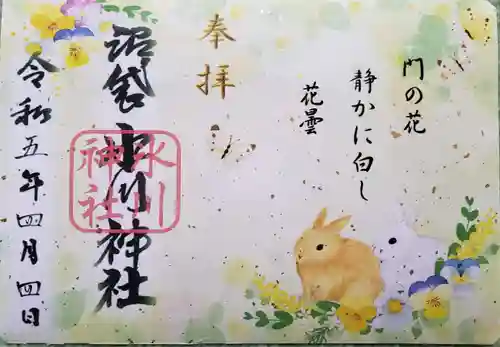 門の花
静かに白し
花曇
奉拝
沼袋氷川神社
氷川
神社
令和五年四月四日